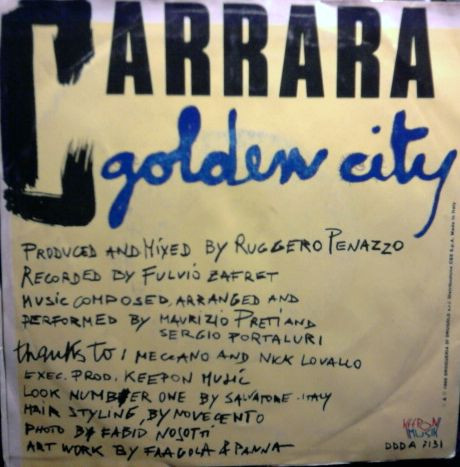 CARRARA
golden city
PRODUCED AND MIXED BY RUGGERO PENAZZO
RECORDED BY FULVIO ZAFRET
MUSIC COMPOSED, ARRANGED AND
PERFORMED BY MAURIZIO PRETI AND
SERGIO PORTALURI
thanks to: MECCANO AND NICK LOVALLO
EXEC. PROD. KEEPON MUSIC
LOOK NUMBER ONE BY SALVATORE. ITALY
HAIR STYLING, BY NOVECENTO
PHOTO BY FABIO NOSOTTI
ART WORK BY FRAGOLA & PANNA
KEEPON
MUSIK
DDD A 7131
Distribuzione CBS S.p.A. Made in Italy